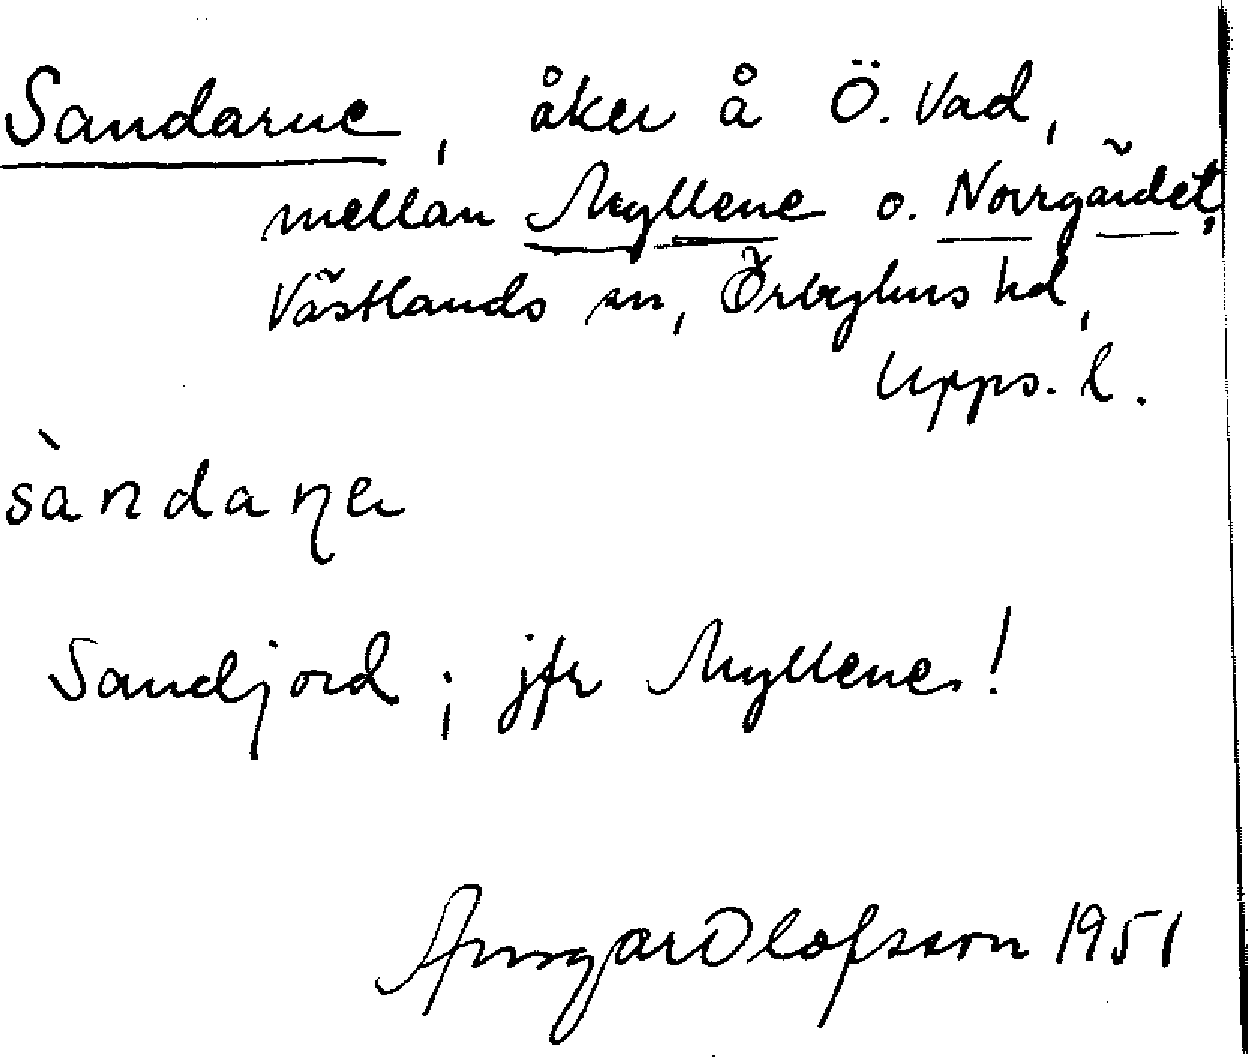 Sandarne, åker å Ö. Vad,
mellan Myllene o. Norrgärdet,
Västlands sn, Örbyhus hd,
Upps. l.
sàndaṇe
Sandjord; jfr Myllene!
Ansgar Olofsson 1951